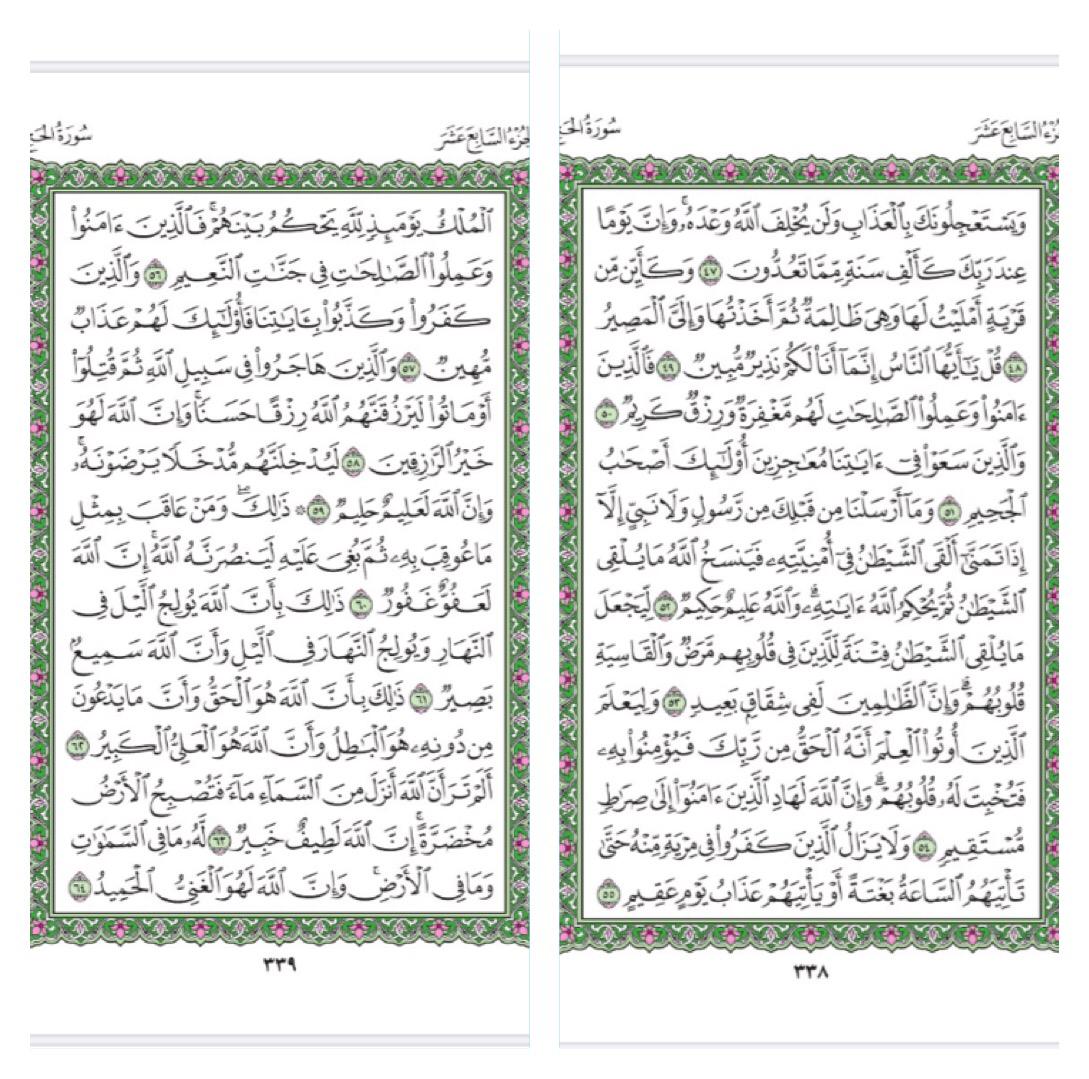 الجزء السابع عشر
سورة الحج
وَيَسْتَعْجِلُونَكَ بِٱلْعَذَابِ وَلَن يُخْلِفَ ٱللَّهُ وَعْدَهُۥۚ وَإِنَّ يَوْمًا
عِندَ رَبِّكَ كَأَلْفِ سَنَةٍ مِّمَّا تَعُدُّونَ ٤٧ وَكَأَيِّن مِّن
قَرْيَةٍ أَمْلَيْتُ لَهَا وَهِىَ ظَالِمَةٌ ثُمَّ أَخَذْتُهَا وَإِلَىَّ ٱلْمَصِيرُ
٤٨ قُلْ يَٰٓأَيُّهَا ٱلنَّاسُ إِنَّمَآ أَنَا۠ لَكُمْ نَذِيرٌ مُّبِينٌ ٤٩ فَٱلَّذِينَ
ءَامَنُوا۟ وَعَمِلُوا۟ ٱلصَّٰلِحَٰتِ لَهُم مَّغْفِرَةٌ وَرِزْقٌ كَرِيمٌ ٥٠
وَٱلَّذِينَ سَعَوْا۟ فِىٓ ءَايَٰتِنَا مُعَٰجِزِينَ أُو۟لَٰٓئِكَ أَصْحَٰبُ
ٱلْجَحِيمِ ٥١ وَمَآ أَرْسَلْنَا مِن قَبْلِكَ مِن رَّسُولٍ وَلَا نَبِىٍّ إِلَّآ
إِذَا تَمَنَّىٰٓ أَلْقَى ٱلشَّيْطَٰنُ فِىٓ أُمْنِيَّتِهِۦ فَيَنسَخُ ٱللَّهُ مَا يُلْقِى
ٱلشَّيْطَٰنُ ثُمَّ يُحْكِمُ ٱللَّهُ ءَايَٰتِهِۦۗ وَٱللَّهُ عَلِيمٌ حَكِيمٌ ٥٢ لِّيَجْعَلَ
مَا يُلْقِى ٱلشَّيْطَٰنُ فِتْنَةً لِّلَّذِينَ فِى قُلُوبِهِم مَّرَضٌ وَٱلْقَاسِيَةِ
قُلُوبُهُمْۗ وَإِنَّ ٱلظَّٰلِمِينَ لَفِى شِقَاقٍۭ بَعِيدٍ ٥٣ وَلِيَعْلَمَ
ٱلَّذِينَ أُوتُوا۟ ٱلْعِلْمَ أَنَّهُ ٱلْحَقُّ مِن رَّبِّكَ فَيُؤْمِنُوا۟ بِهِۦ
فَتُخْبِتَ لَهُۥ قُلُوبُهُمْۗ وَإِنَّ ٱللَّهَ لَهَادِ ٱلَّذِينَ ءَامَنُوٓا۟ إِلَىٰ صِرَٰطٍ
مُّسْتَقِيمٍ ٥٤ وَلَا يَزَالُ ٱلَّذِينَ كَفَرُوا۟ فِى مِرْيَةٍ مِّنْهُ حَتَّىٰ
تَأْتِيَهُمُ ٱلسَّاعَةُ بَغْتَةً أَوْ يَأْتِيَهُمْ عَذَابُ يَوْمٍ عَقِيمٍ ٥٥
٣٣٨
الجزء السابع عشر
سورة الحج
ٱلْمُلْكُ يَوْمَئِذٍ لِّلَّهِ يَحْكُمُ بَيْنَهُمْۚ فَٱلَّذِينَ ءَامَنُوا۟
وَعَمِلُوا۟ ٱلصَّٰلِحَٰتِ فِى جَنَّٰتِ ٱلنَّعِيمِ ٥٦ وَٱلَّذِينَ
كَفَرُوا۟ وَكَذَّبُوا۟ بِـَٔايَٰتِنَا فَأُو۟لَٰٓئِكَ لَهُمْ عَذَابٌ
مُّهِينٌ ٥٧ وَٱلَّذِينَ هَاجَرُوا۟ فِى سَبِيلِ ٱللَّهِ ثُمَّ قُتِلُوٓا۟
أَوْ مَاتُوا۟ لَيَرْزُقَنَّهُمُ ٱللَّهُ رِزْقًا حَسَنًاۚ وَإِنَّ ٱللَّهَ لَهُوَ
خَيْرُ ٱلرَّٰزِقِينَ ٥٨ لَيُدْخِلَنَّهُم مُّدْخَلًا يَرْضَوْنَهُۥۚ
وَإِنَّ ٱللَّهَ لَعَلِيمٌ حَلِيمٌ ٥٩ ۞ ذَٰلِكَۖ وَمَنْ عَاقَبَ بِمِثْلِ
مَا عُوقِبَ بِهِۦ ثُمَّ بُغِىَ عَلَيْهِ لَيَنصُرَنَّهُ ٱللَّهُۚ إِنَّ ٱللَّهَ
لَعَفُوٌّ غَفُورٌ ٦٠ ذَٰلِكَ بِأَنَّ ٱللَّهَ يُولِجُ ٱلَّيْلَ فِى
ٱلنَّهَارِ وَيُولِجُ ٱلنَّهَارَ فِى ٱلَّيْلِ وَأَنَّ ٱللَّهَ سَمِيعٌۢ
بَصِيرٌ ٦١ ذَٰلِكَ بِأَنَّ ٱللَّهَ هُوَ ٱلْحَقُّ وَأَنَّ مَا يَدْعُونَ
مِن دُونِهِۦ هُوَ ٱلْبَٰطِلُ وَأَنَّ ٱللَّهَ هُوَ ٱلْعَلِىُّ ٱلْكَبِيرُ ٦٢
أَلَمْ تَرَ أَنَّ ٱللَّهَ أَنزَلَ مِنَ ٱلسَّمَآءِ مَآءً فَتُصْبِحُ ٱلْأَرْضُ
مُخْضَرَّةًۗ إِنَّ ٱللَّهَ لَطِيفٌ خَبِيرٌ ٦٣ لَّهُۥ مَا فِى ٱلسَّمَٰوَٰتِ
وَمَا فِى ٱلْأَرْضِۗ وَإِنَّ ٱللَّهَ لَهُوَ ٱلْغَنِىُّ ٱلْحَمِيدُ ٦٤
٣٣٩